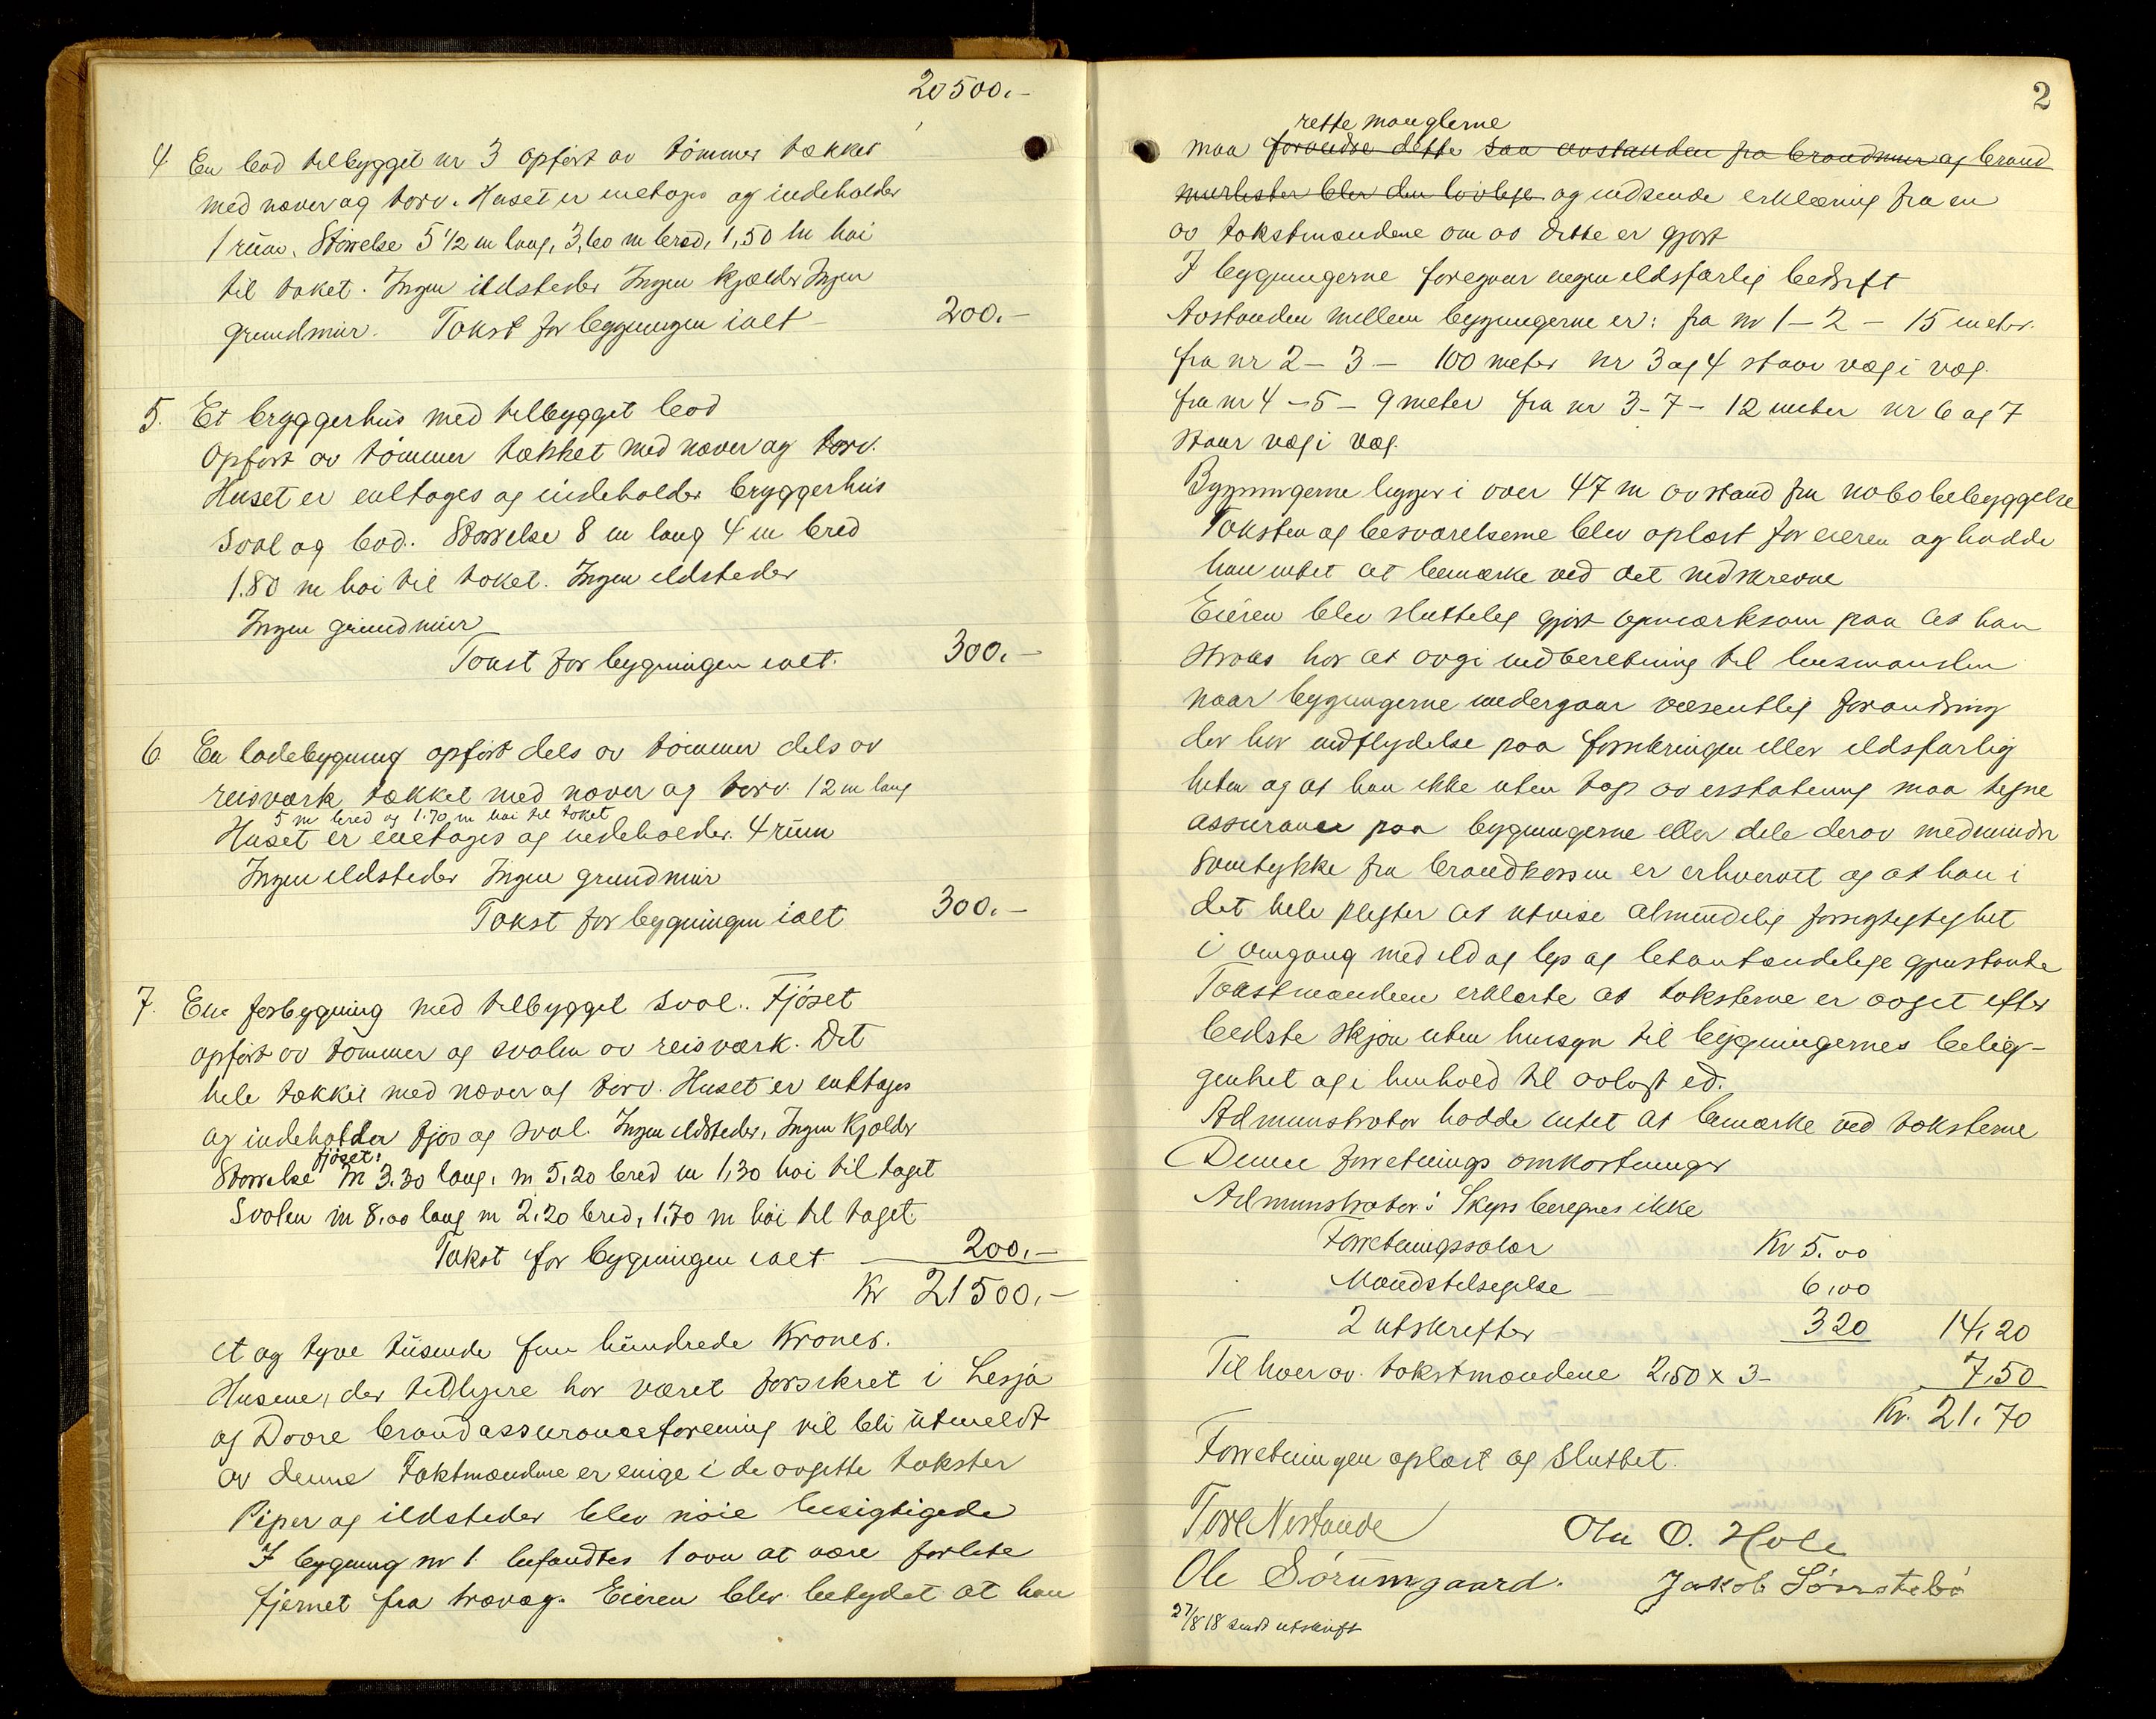 20500.-
4 En bod tilbygget nr 3 opført av tømmer tækket
med næver og torv. Huset er enetages og indeholder
1 rum. Størrelse 5 1/2 m lang, 3,60 m bred, 1,50 m høi
til taket. Ingen ildsteder Ingen kjælder Ingen
grundmur. Takst for bygningen ialt 200.-
5. Et bryggerhus med tilbygget bod
Opført av tømmer tækket med næver og torv.
Huset er entages og indeholder bryggerhus
sval og bod. Størrelse 8 m lang 4 m bred
1.80 m høi til taket. Ingen ildsteder
Ingen grundmur
Takst for bygningen ialt. 300.-
6. En ladebygning opført dels av tømmer dels av
reisværk tækket med næver og torv. 12 m lang
5 m bred og 1.70 m høi til taket
Huset er enetages og indeholder 4 rum
Ingen ildsteder Ingen grundmur
Takst for bygningen ialt 300.-
7. En fjøsbygning med tilbygget sval. Fjøset
opført av tømmer og svalen av reisværk. Det
hele tækket med næver og torv. Huset er entages
og indeholder fjøs og sval. Ingen ildsteder, Ingen kjælder
fjøset:
Størrelse m 3.30 lang, m 5,20 bred m 1,30 høi til taget
Svalen m 8,00 lang m 2,20 bred, 1.70 m høi til taget.
Takst for bygningen ialt 200,-
Kr 21500,-
et og tyve tusende fem hundrede Kroner.
Husene, der tidligere har været forsikret i Lesja
og Dovre brandassuranceforening vil bli utmeldt
av denne Takstmændene er enige i de avgitte takster
Piper og ildsteder blev nøie besigtigede
I bygning nr 1 befandtes 1 ovn at være forlite
fjernet fra trævæg. Eieren blev betydet at han
2
rette manglerne
maa forandre dette saa avstanden fra brandmur og brand
murlister blev den lovlige og indsende erklæring fra en
av takstmændene om at dette er gjort
I bygningerne foregaar ingen ildsfarlig bedrift
Avstanden mellem bygningerne er: fra nr 1 - 2 - 15 meter.
fra nr 2 - 3 - 100 meter nr 3 og 4 staar væg i væg.
fra nr 4 - 5 - 9 meter fra nr 3 - 7 - 12 meter nr 6 og 7
staar væg i væg.
Bygningerne ligger i over 47 m avstand fra nabobebyggelse
Taksten og besvarelserne blev oplæst for eieren og hadde
han intet at bemærke ved det nedskrevne
Eieren blev sluttelig gjort opmærksom paa at han
straks har at avgi indberetning til lensmanden
naar bygningerne undergaar væsentlig forandring
der har indflydelse paa forsikringen eller ildsfarlig
heten og at han ikke uten tap av erstatning maa tegne
assurance paa bygningerne eller dele derav medmindre
samtykke fra brandkassen er erhvervet og at han i
det hele pligter at utvise almindelig forsigtighet
i omgang med ild og lys og letantændelige gjenstande
Takstmændene erklærte at taksterne er avgit efter
bedste skjøn uten hensyn til bygningernes belig-
genhet og i henhold til avlagt ed.
Administrator hadde intet at bemærke ved taksterne
Denne forretnings omkostninger
Administrator: Skyss beregnes ikke
Forretningssalær Kr 5.00
Mandstilsigelse 6,00
2 utskrifter 3 20 14,20
Til hver av takstmændene 2,50 x 3 - 7,50
Kr. 21,70
Forretningen oplæst og sluttet.
Tore Nestande Ole O. Hole
Ole Sørumgaard. Jakob Sønstebø
27/8 18 sendt utskrift